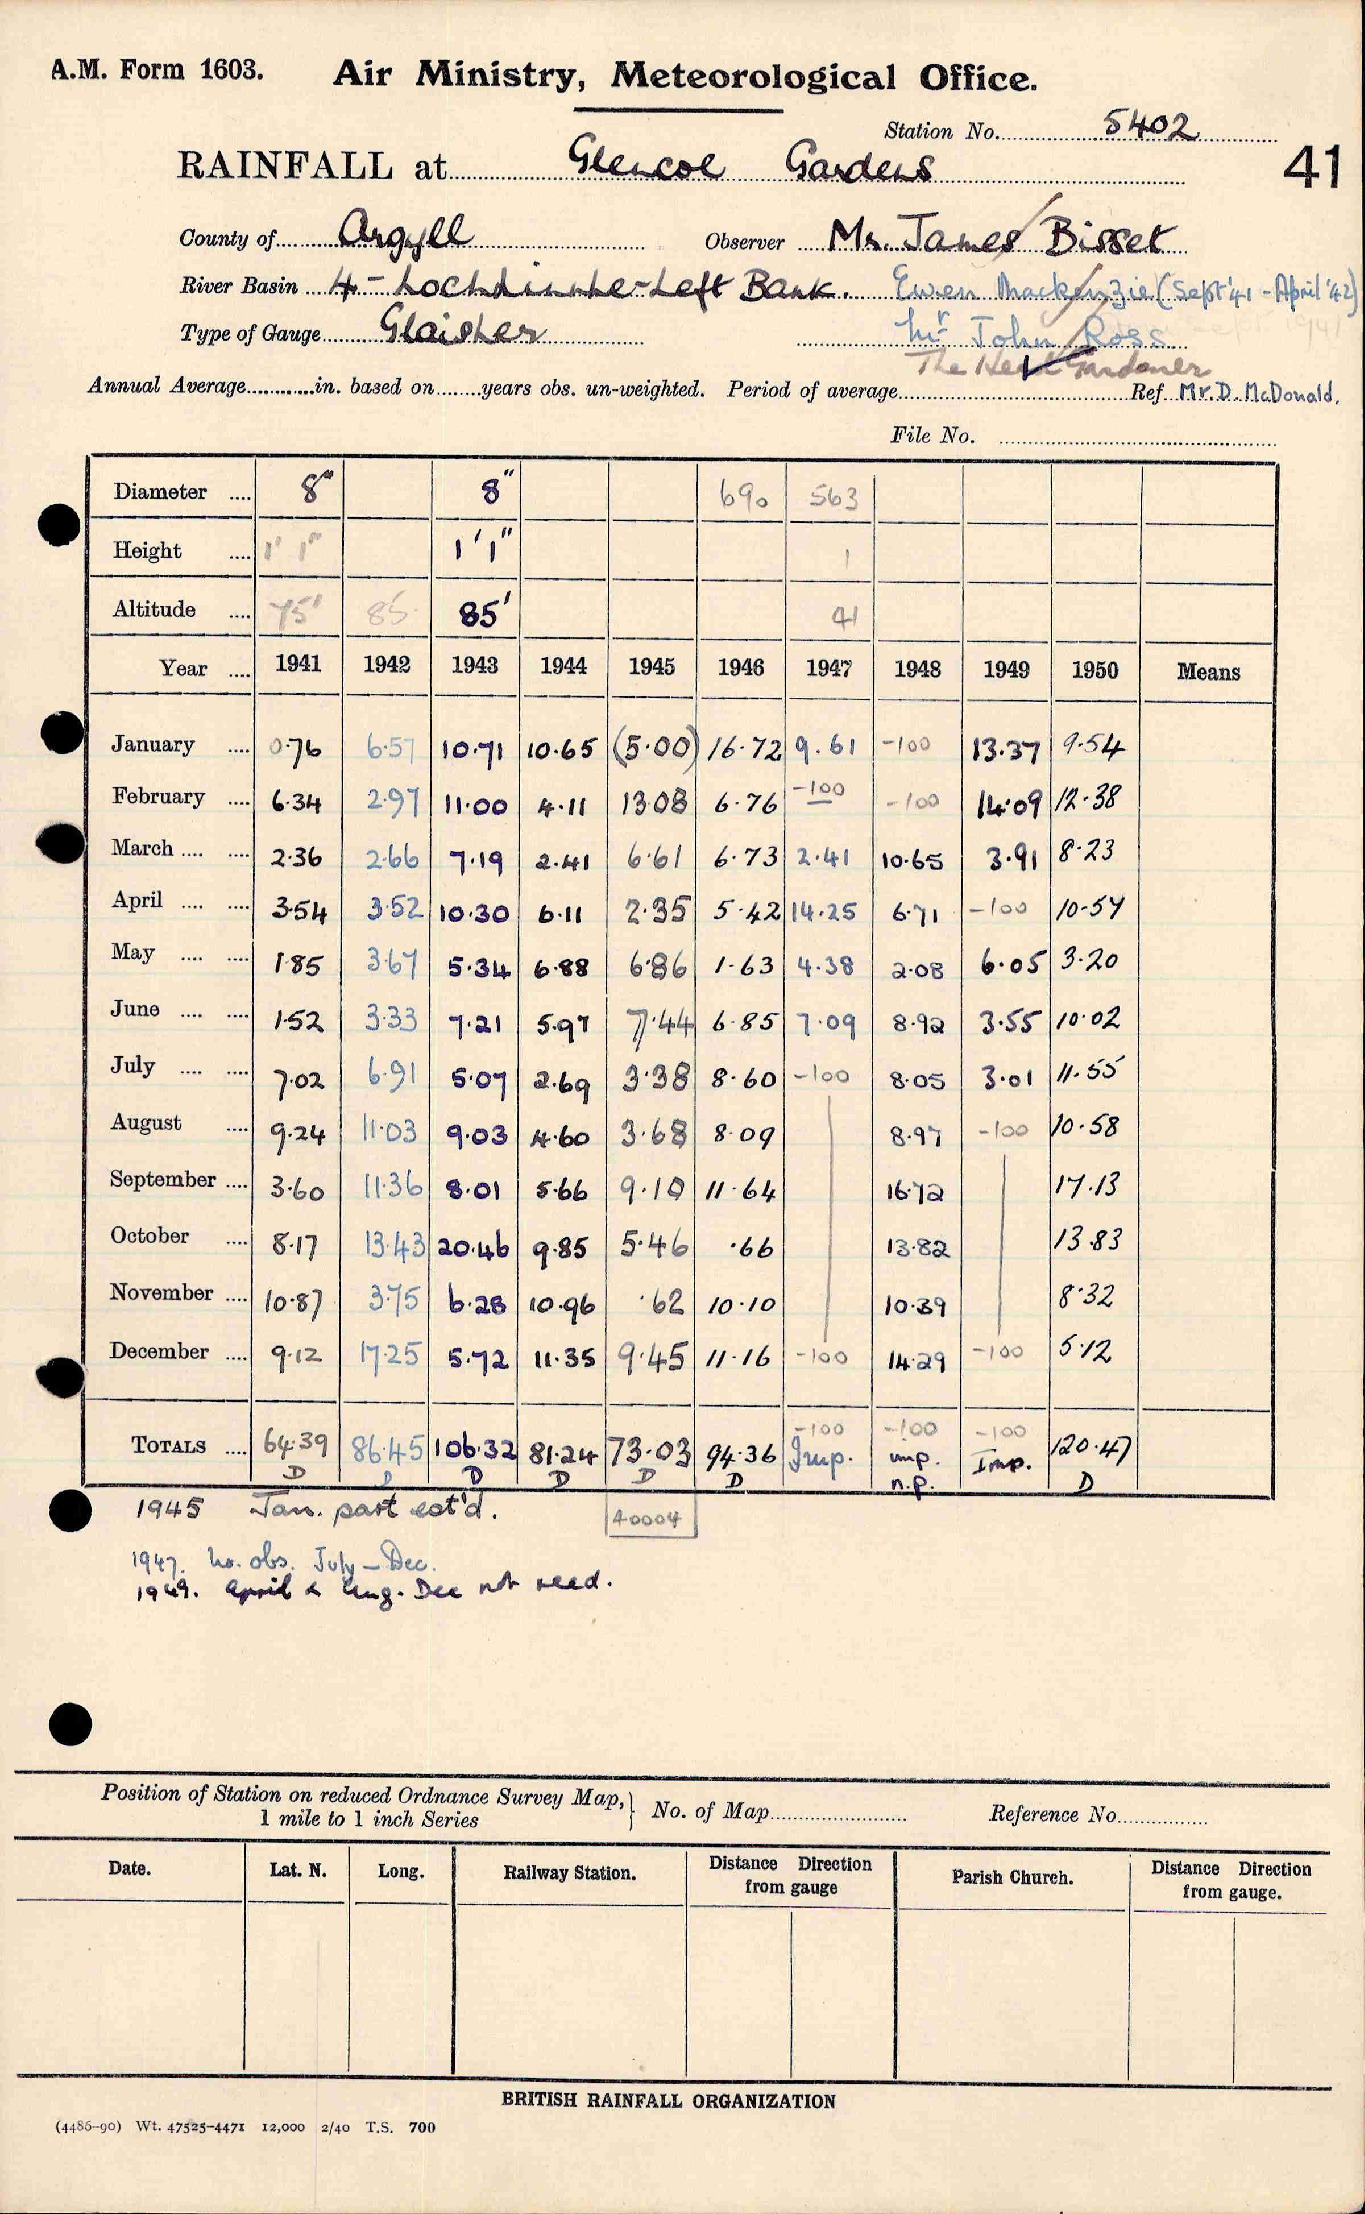 A.M. Form 1603. Air Ministry, Meteorological Office.
Station No. 5402
RAINFALL at Glencoe Gardens 41
County of Argyll Observer Mr. James Bisset
River Basin 4 - Lochdinnhe-Left Bank. Ewen Mackenzie (Sept '41 - April '42)
Type of Gauge Glaisher Mr John Ross
The Head Gardener
Annual Average in. based on years obs. un-weighted. Period of average Ref Mr. D. McDonald.
File No.
Diameter 8" 8" 690 563
Height 1' 1" 1' 1" 1
Altitude 75' 85 85' 41
Year 1941 1942 1943 1944 1945 1946 1947 1948 1949 1950 Means
January 0.76 6.57 10.71 10.65 (5.00) 16.72 9.61 -100 13.37 9.54
February 6.34 2.97 11.00 4.11 13.08 6.76 -100 -100 14.09 12.38
March 2.36 2.66 7.19 2.41 6.61 6.73 2.41 10.65 3.91 8.23
April 3.54 3.52 10.30 6.11 2.35 5.42 14.25 6.71 -100 10.57
May 1.85 3.67 5.34 6.88 6.86 1.63 4.38 2.08 6.05 3.20
June 1.52 3.33 7.21 5.97 7.44 6.85 7.09 8.92 3.55 10.02
July 7.02 6.91 5.07 2.69 3.38 8.60 -100 8.05 3.01 11.55
August 9.24 11.03 9.03 4.60 3.68 8.09 8.97 -100 10.58
September 3.60 11.36 8.01 5.66 9.10 11.64 16.72 17.13
October 8.17 13.43 20.46 9.85 5.46 .66 13.82 13.83
November 10.87 3.75 6.28 10.96 .62 10.10 10.39 8.32
December 9.12 17.25 5.72 11.35 9.45 11.16 -100 14.29 -100 5.12
-100 -100 -100
TOTALS 64.39 86.45 106.32 81.24 73.03 94.36 Imp. imp. Imp. 120.47
D D D D D D n.p. D
1945 Jan. part est'd. 40004
1947. No. obs. July - Dec.
1949. April & Aug. Dec not recd.
Position of Station on reduced Ordnance Survey Map, No. of Map Reference No.
1 mile to 1 inch Series
Date. Lat. N. Long. Railway Station. Distance Direction from gauge Parish Church. Distance Direction from gauge.
BRITISH RAINFALL ORGANIZATION
(4486-90) Wt. 47525-4471 12,000 2/40 T.S. 700